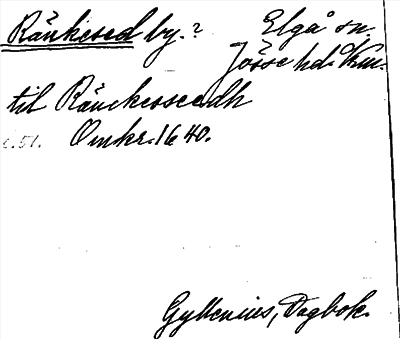 Ränkesed by.? Elgå sn.
Jösse hd. Vrm.
til Ränckesseedh
s. 51. Omkr. 1640.
Gyllenius, Dagbok.